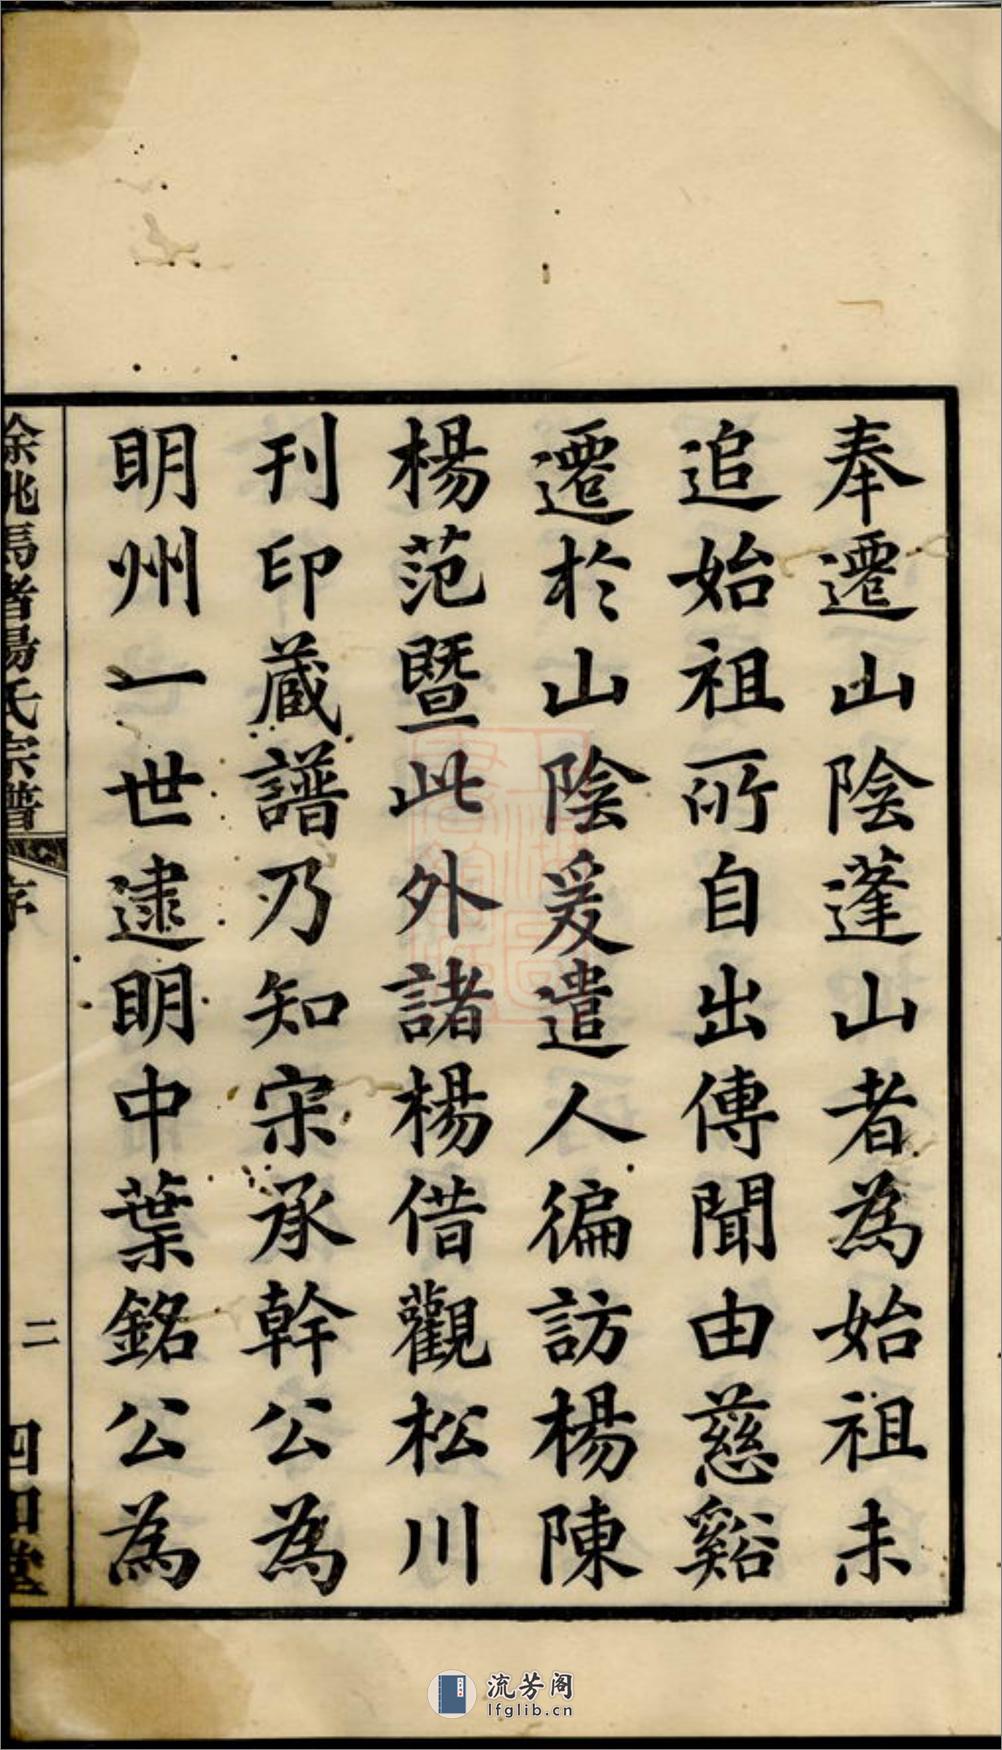 奉遷山陰蓬山者為始祖未
追始祖所自出傳聞由慈谿
遷於山陰爰遣人徧訪楊陳
楊范暨此外諸楊借觀松川
刊印蔵譜乃知宋承幹公為
明州一世逮明中葉銘公為
餘姚馬渚楊氏宗譜
序
二
四知堂
流芳阁
lfglib.cn